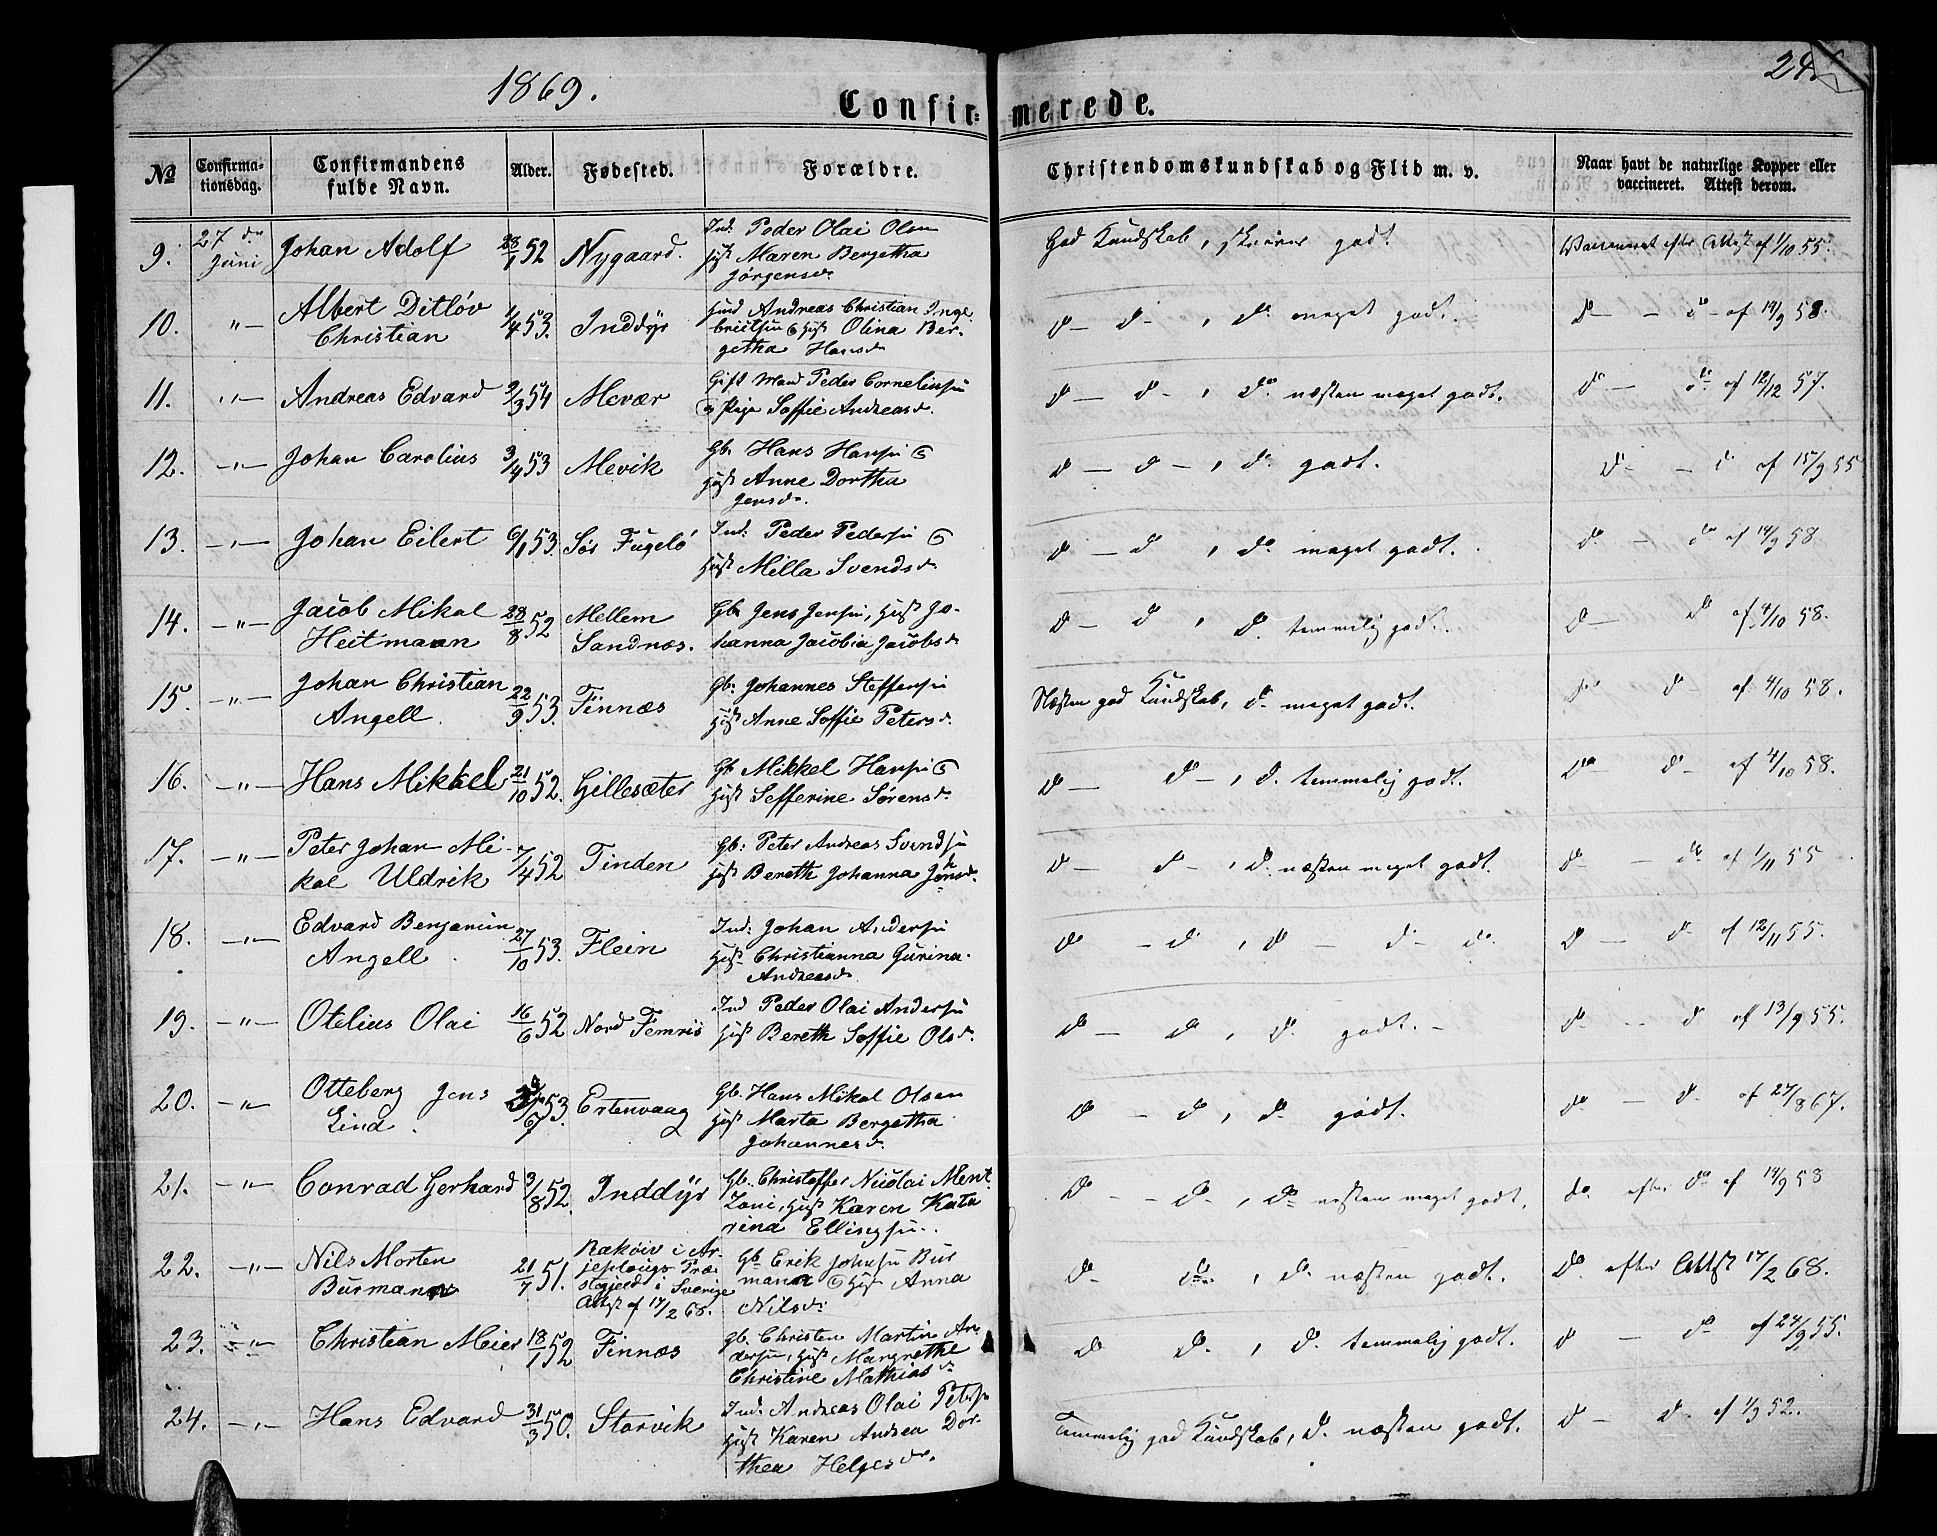 1869.
24
Confir-
merede.
No
Confirma-
tionsdag.
Confirmandens
fulde Navn.
Alder.
Fødested.
Forældre.
Christendomskundskab og Flid m. v.
Naar havt de naturlige Kopper eller
vaccineret. Attest derom.
9. 27de Juni Johan Adolf 28/1 52 Nygaard. Ind: Peder Olai Olsen
Hust Maren Bergetha
Jørgensdr
God Kundskab, skriver godt. Vaccineret efter Attest af 1/10 55.
10. " Albert Ditløv
Christian 1/4 53. Inddyr Ind Andreas Christian Inge
brictsen & Hust Olina Ber-
getha Hansdr
do - do - , do meget godt. do - do - af 14/9 58.
11. " Andreas Edvard 9/3 54 Mevær Gift Mand Peder Cornelius
& Pige Soffie Andreasdr.
do - do - , do næsten meget godt. do - do af 12/12 57.
12. " Johan Carolius 3/4 53 Mevik Gb. Hans Hansen &
Hust Anne Dorthea
Jensdr.
do - do - , do godt. do - do af 15/9 55
13. " Johan Eilert 6/1 53. Sør Fugelö Ind: Peder Pedersen &
Hust Mella Svendsdr
do - do , do meget godt. do - do af 14/9 58.
14. " Jacob Mikal
Heitmann 28/8 52 Mellem
Sandnæs. Gb. Jens Jensen, Hust Jo-
hanna Jacobia Jacobsdr
do - do , do temmelig godt. do - do af 4/10 58.
15. " Johan Christian
Angell. 22/9 53. Finnæs Gb: Johannes Steffensen
Hust Anne Soffie Petersdr.
Næsten god Kundskab, do meget godt. do - do - af 4/10 58.
16. " Hans Mikkel 21/10 52. Gillesæter Gb Mikkel Hansen &
Hust Sefferine Sørensdr
do - do - , do temmelig godt. do - do - af 4/10 58.
17. " Peter Johan Mi-
kal Uldrik 7/4 52 Tinden Gb: Peter Andreas Svendsen
Hust Bereth Johanna Jensdr.
do - do - , do næsten meget godt. do - do af 1/11 55
18. " Edvard Benjamin
Angell. 27/10 53. Flein Ind: Johan Andersen
Hust Christianna Gurina
Andreasdr
do - do , do - do - do do - do af 12/11 55.
19. " Otelius Olai 16/6 52 Nord Femris Ind Peder Olai Andersen
Hust Bereth Soffie Olsdr.
do - do , do godt. do - do af 13/9 55.
20. " Otteberg Jens
Lind. /6 53. Ertenvaag Gb. Hans Mikal Olsen
Hust Marta Bergetha
Johannesdr
do - do , do godt. do - do af 27/8 67.
21. " Conrad Gerhard 3/8 52. Inddyr Gb. Christoffer Nicolai Ment
Zoni, Hust Karen Kata
rina Ellingsen.
do - do , do næsten meget godt. do. efter do af 14/9 58
22. " Nils Morten
Burmann 21/7 51. Rækøiv i Ar-
jeplougs Præ-
stegjeld i Sverige
Attest af 17/2 68. Gb Erik Johnsen Bur
mann & Hust Anna
Nilsdr
do do , do næsten godt. do efter Attest 17/2 68.
23. " Christian Meier 18/1 52 Finnæs Gb. Christen Martin An-
dersen, Hust Margrethe
Christine Mathiasdr
do do , do temmelig godt. do - do af 24/9 55.
24. " Hans Edvard 31/3 50. Storvik Ind: Andreas Olai Petersen
Hust Karen Andrea Dor-
thea Helgesdr.
Temmelig god Kundskab, do næsten godt. do - do af 1/9 52.